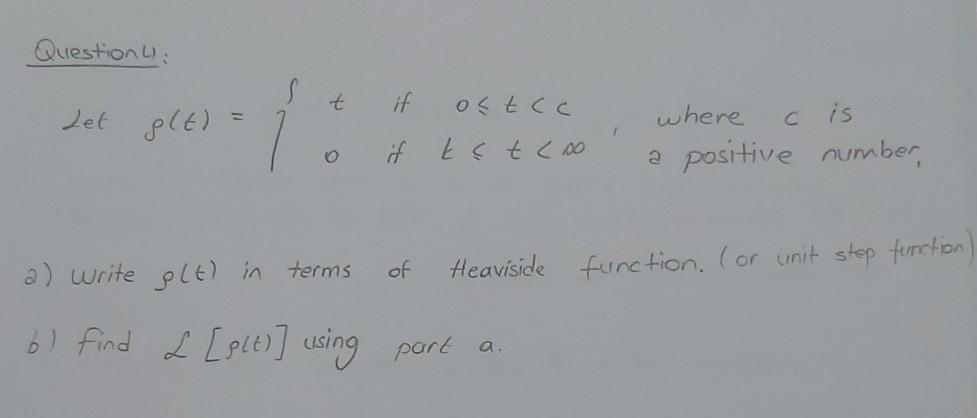 Question 4:
Let g(t) = { t if 0 ≤ t < c
0 if t ≤ t < ∞ , where c is
a positive number,
a) Write g(t) in terms of Heaviside function. (or unit step function)
b) find ℒ [g(t)] using part a.